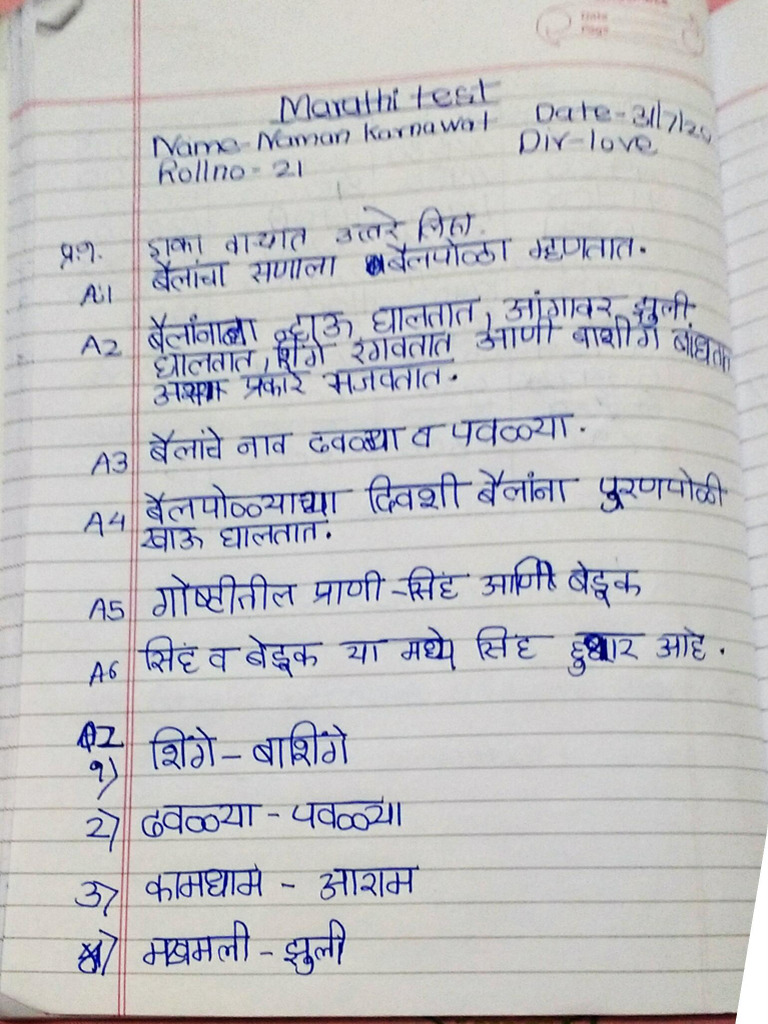 Date
Page
Marathi test
Name- Naman Karnawat Date-31/7/20
Rollno- 21 Div-love
प्र.१. एका वाक्यात उत्तरे लिहा.
A.1 बैलांचा सणाला बैलपोळा म्हणतात.
A2 बैलांना न्हाऊ घालतात, आंगावर झुली
घालतात, शिंगे रंगवतात आणी बाशींगे बांधतात
अश्या प्रकारे सजवतात.
A3 बैलांचे नाव ढवळ्या व पवळ्या.
A4 बैलपोळ्याच्या दिवशी बैलांना पुरणपोळी
खाऊ घालतात.
A5 गोष्टीतील प्राणी-सिंह आणि बेडूक
A6 सिंह व बेडूक या मध्ये सिंह हुशार आहे.
A2
१) शिंगे - बाशिंगे
2) ढवळ्या - पवळ्या
3) कामधाम - आराम
४) मखमली - झुली